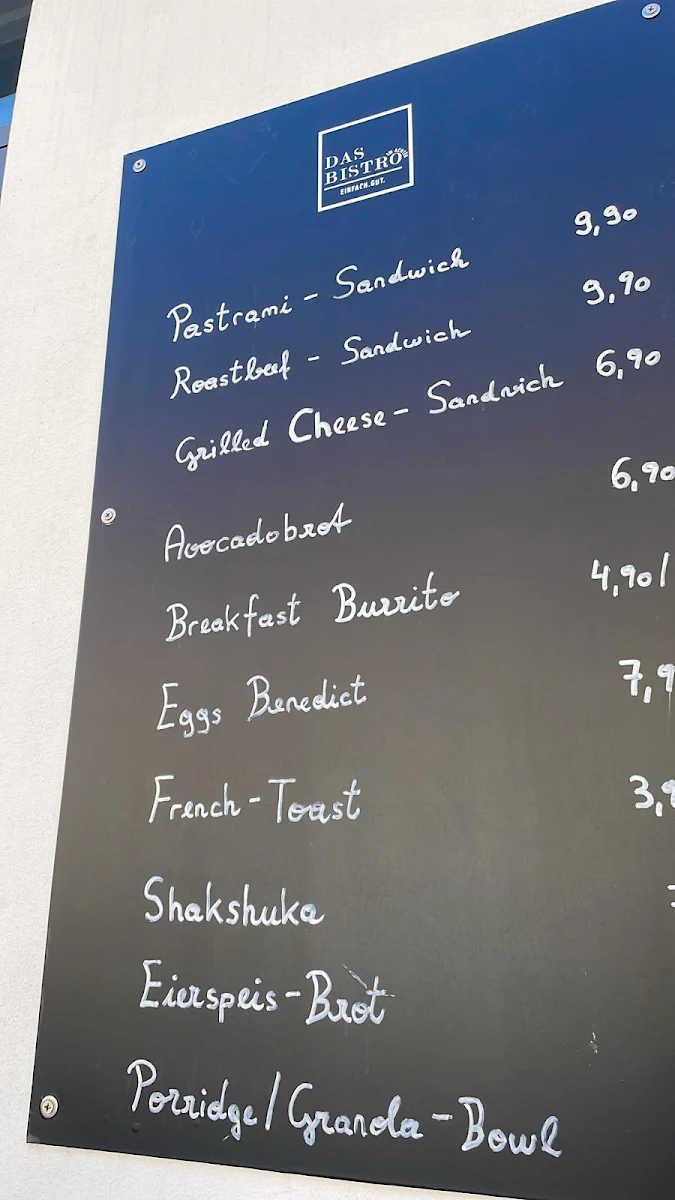 DAS
BISTRO
EINFACH.GUT.
Pastrami - Sandwich 9,90
Roastbeef - Sandwich 9,90
Grilled Cheese - Sandwich 6,90
Avocadobrot 6,90
Breakfast Burrito 4,90/
Eggs Benedict 7,9
French - Toast 3,9
Shakshuka
Eierspeis - Brot
Porridge/Granola - Bowl